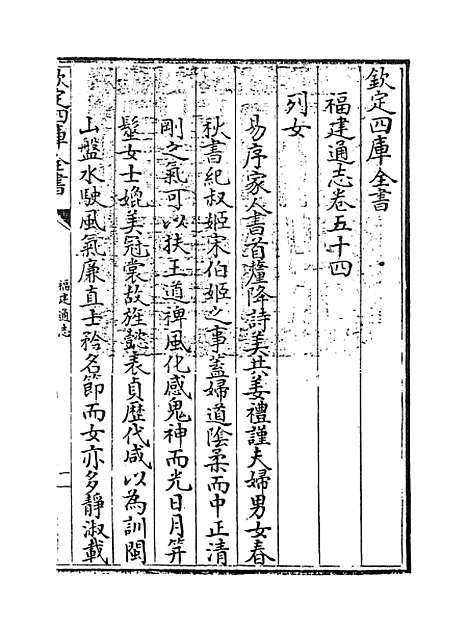 欽定四庫全書
福建通志卷五十四
列女
易序家人書首釐降詩美共姜禮謹夫婦男女春
秋書紀叔姬宋伯姬之事蓋婦道陰柔而中正清
剛之氣可以扶王道裨風化感鬼神而光日月笄
髮女士娩美冠裳故旌懿表貞歷代咸以為訓閩
山盤水駛風氣廉直士矜名節而女亦多靜淑載
欽定四庫全書
福建通志
一